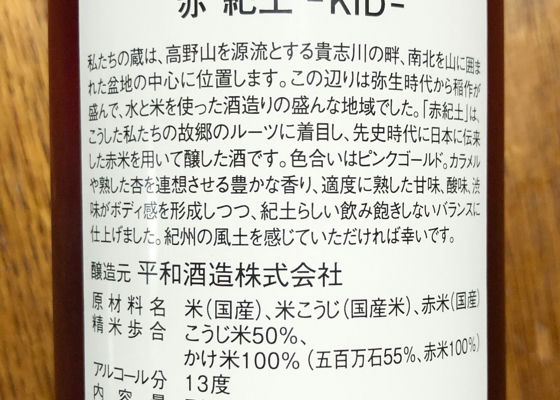 赤 紀土 -KID-
私たちの蔵は、高野山を源流とする貴志川の畔、南北を山に囲ま
れた盆地の中心に位置します。この辺りは弥生時代から稲作が
盛んで、水と米を使った酒造りの盛んな地域でした。「赤紀土」は、
こうした私たちの故郷のルーツに着目し、先史時代に日本に伝来
した赤米を用いて醸した酒です。色合いはピンクゴールド。カラメル
や熟した杏を連想させる豊かな香り、適度に熟した甘味、酸味、渋
味がボディ感を形成しつつ、紀土らしい飲み飽きしないバランスに
仕上げました。紀州の風土を感じていただければ幸いです。
醸造元 平和酒造株式会社
原材料名 米(国産)、米こうじ(国産米)、赤米(国産)
精米歩合 こうじ米50%、
かけ米100%(五百万石55%、赤米100%)
アルコール分 13度
内容量